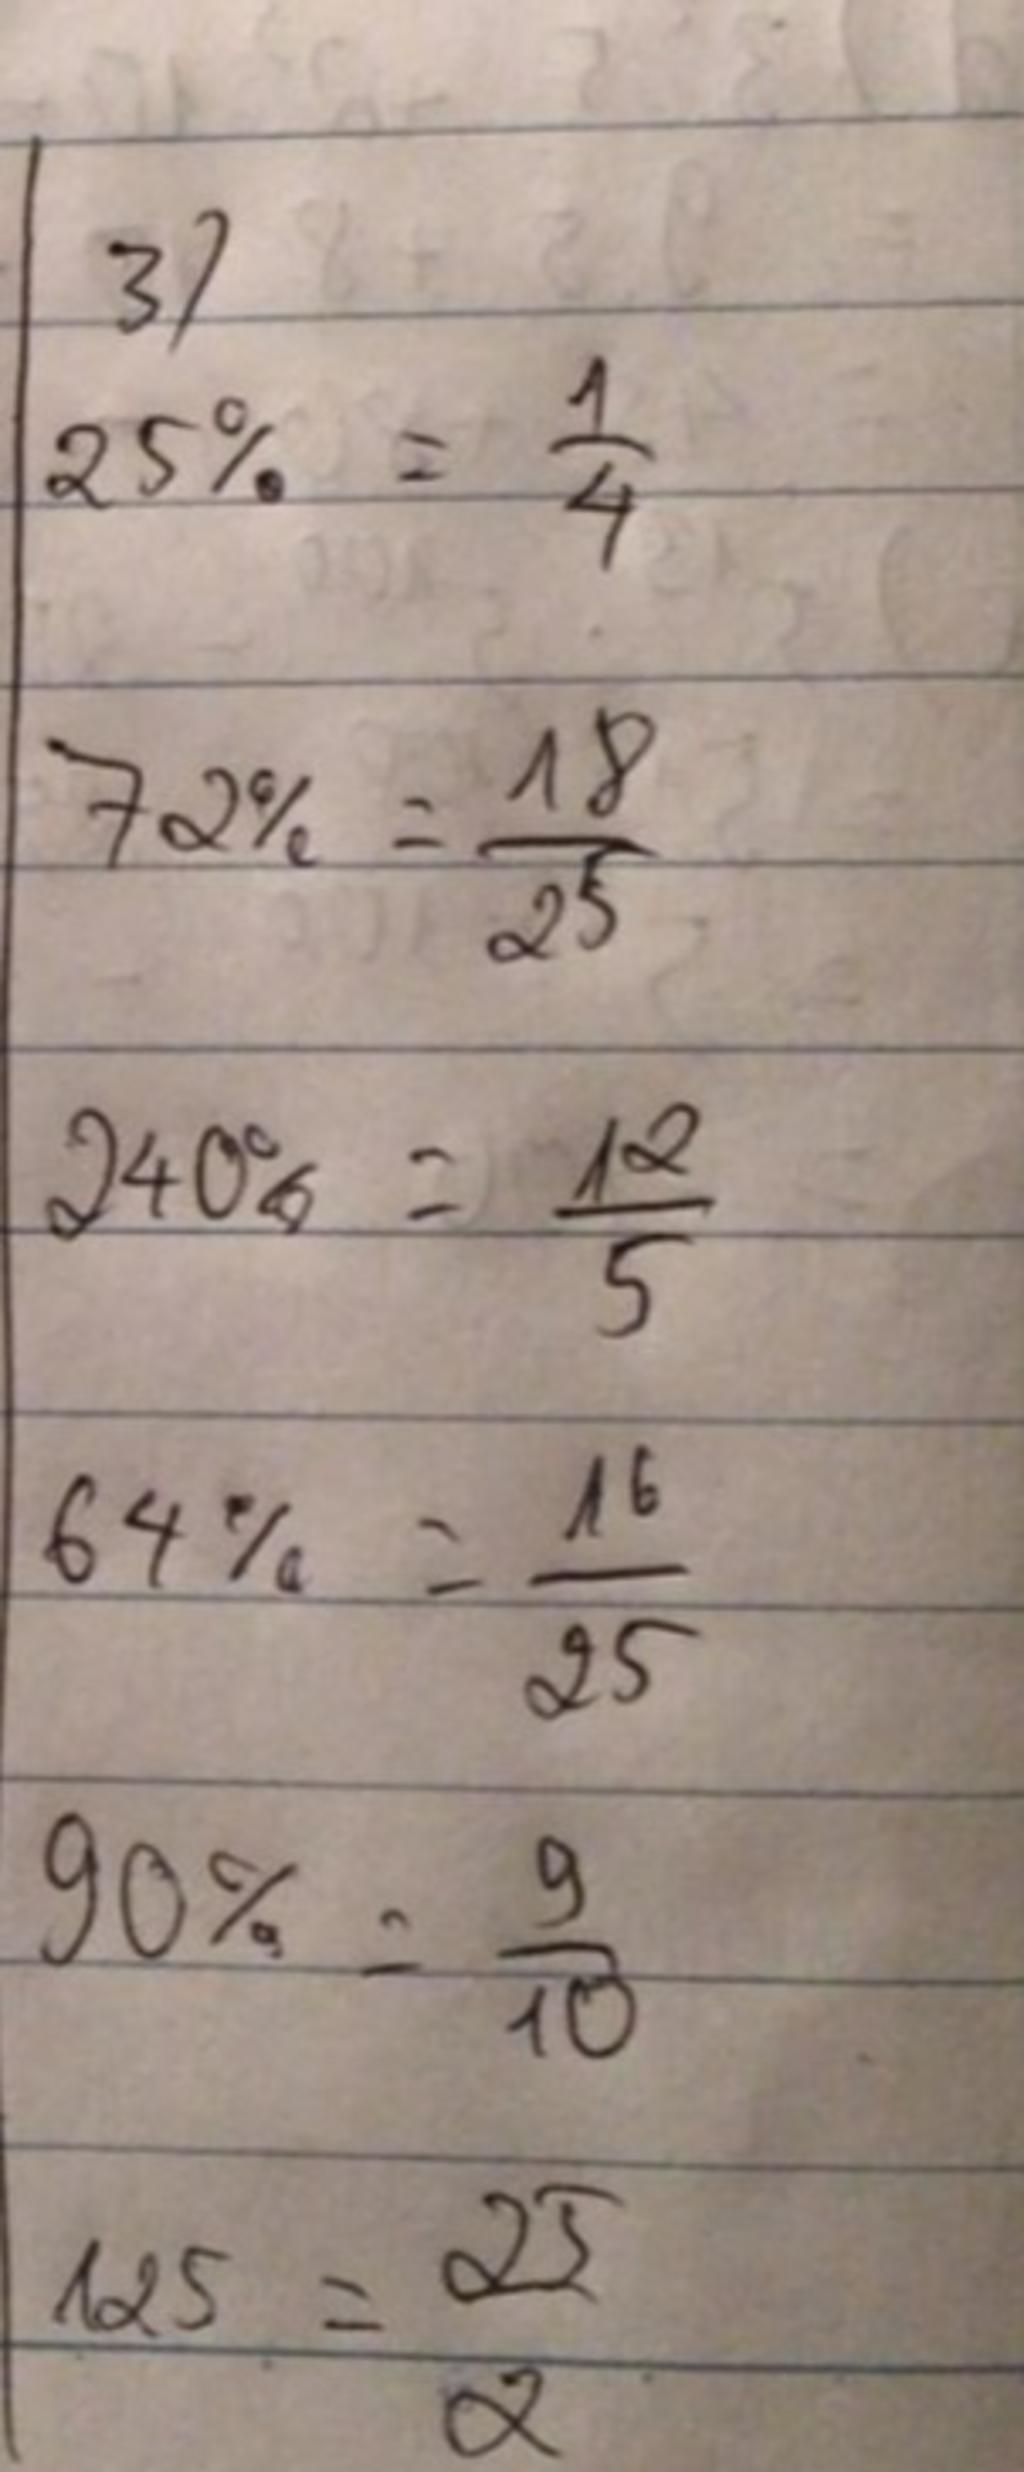 3)
25% = 1/4
72% = 18/25
240% = 12/5
64% = 16/25
90% = 9/10
125 = 25/2